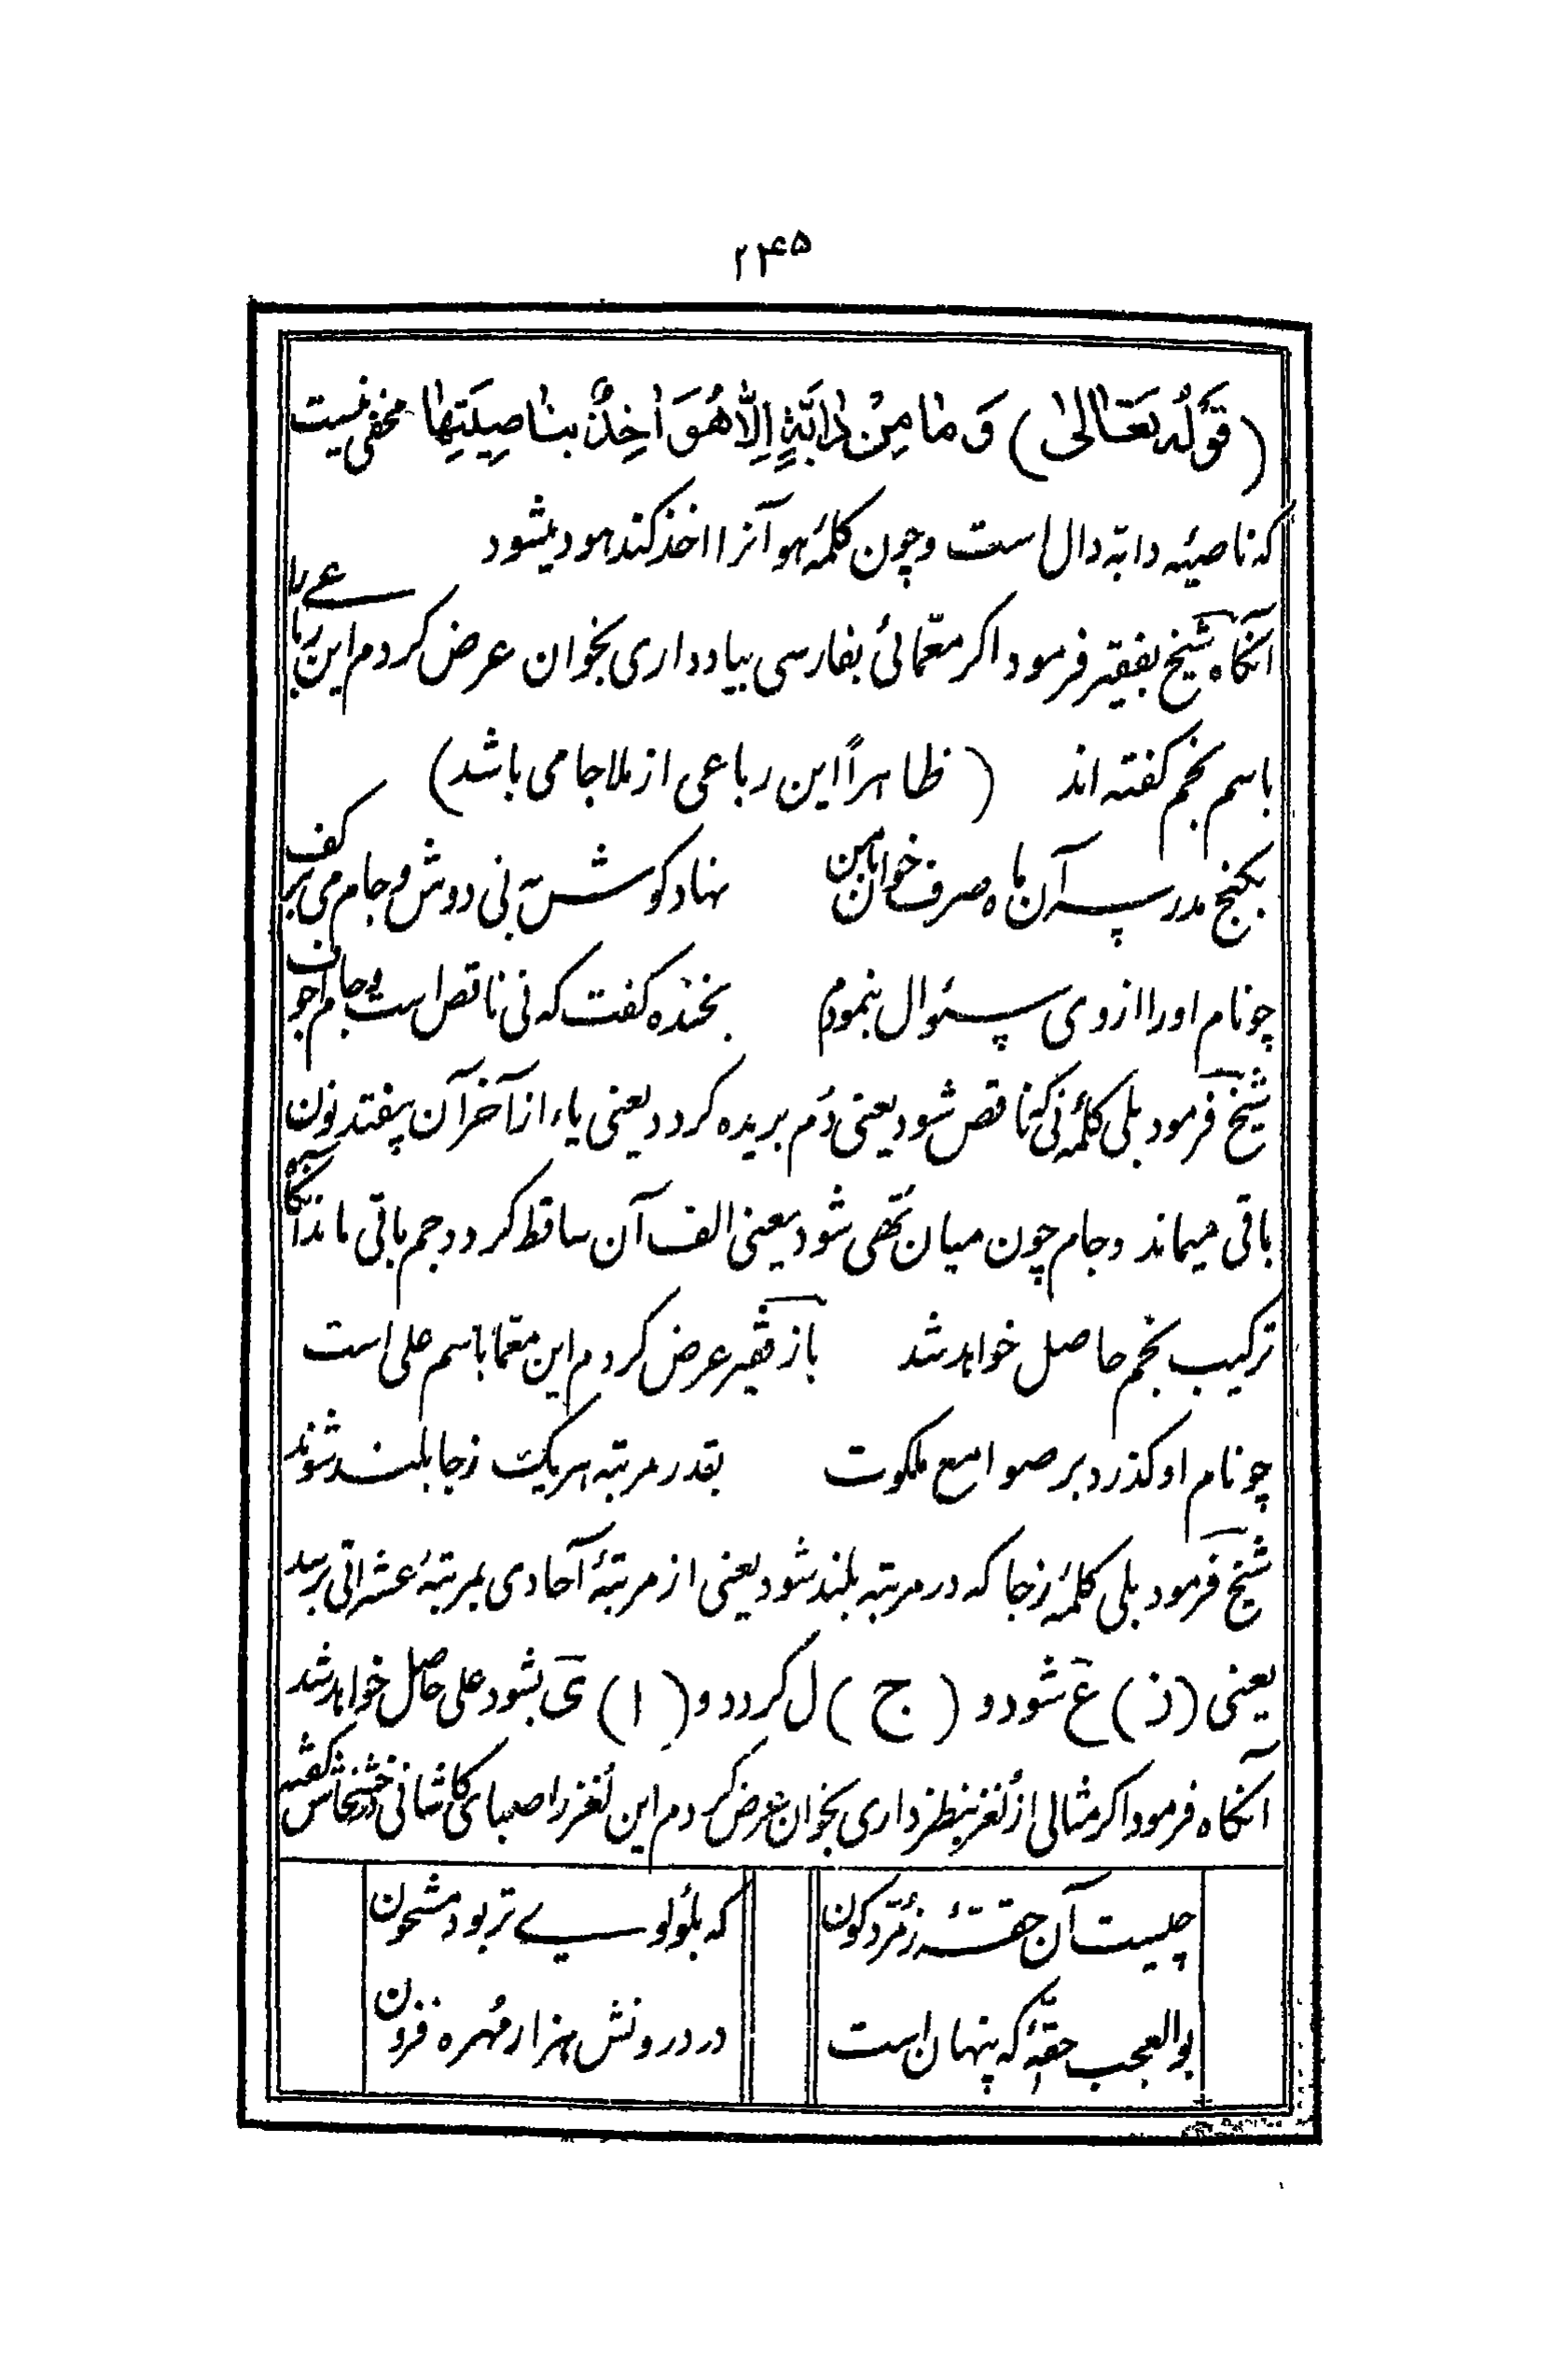 ۲۴۵
(قَولُه تَعَالیٰ) وَ مٰا مِنْ دٰابَّةٍ اِلّٰا هُوَ اٰخِذٌ بِنٰاصِیَتِهٰا مخفی نیست
که ناصیهٔ دابّه دال است و چون کلمهٔ هو آنرا اخذ کند هود میشود
آنگاه شیخ بفقیر فرمود اکر معمّائی بفارسی بیاد داری بخوان عرض کردم این رباعی را
باسم نجم کفته اند (ظاهراً این رباعی از ملا جامی باشد)
بکنج مدرسه آن ماه صرف خوان با من نهاد کوشهٔ نی دوش و جام می بر کف
چو نام او را از وی سئوال بنمودم بخنده کفت که نی ناقص است و جام اجوف
شیخ فرمود بلی کلمهٔ نی که ناقص شود یعنی دُم بریده کردد یعنی یاء از آخر آن بیفتد نون
باقی میماند و جام چون میان تُهی شود یعنی الف آن ساقط کردد جم باقی ماند آنگاه
ترکیب نجم حاصل خواهد شد باز فقیر عرض کردم این معمّا باسم علی است
چو نام او کذرد بر صوامع ملکوت بقدر مرتبه هریک ز جا بلند شوند
شیخ فرمود بلی کلمهٔ ز جا که در مرتبه بلند شود یعنی از مرتبهٔ آحادی بمرتبهٔ عشراتی برسد
یعنی (ز) عَ شود و (ج) ل کردد و (ا) یَ بشود علی حاصل خواهد شد
آنگاه فرمود اکر مثالی از لُغز بنظر داری بخوان عرض کردم این لُغز را صهبای کاشانی در خشخاش کفته
چیست آن حقّهٔ زمُرّد کون که بلُولویِ تر بود مشحون
بوالعجب حقّهٔ که پنهان است در درونش هزار مُهره فزون